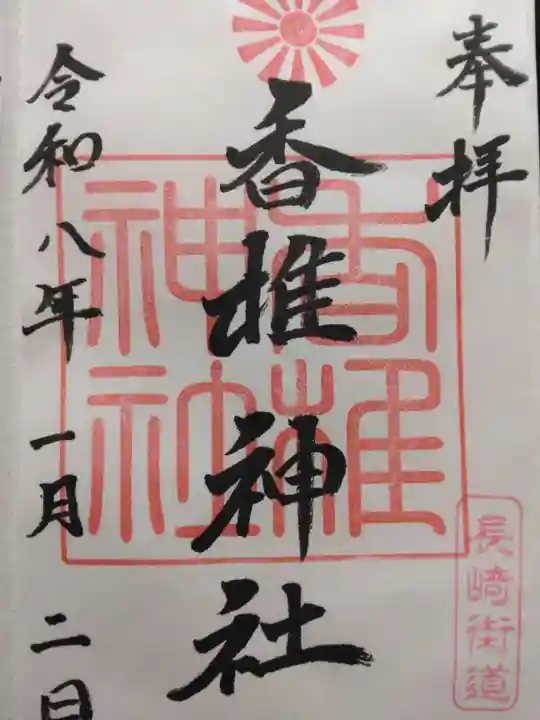 奉拝
香椎神社
令和八年一月二日
香椎
神社
長崎街道